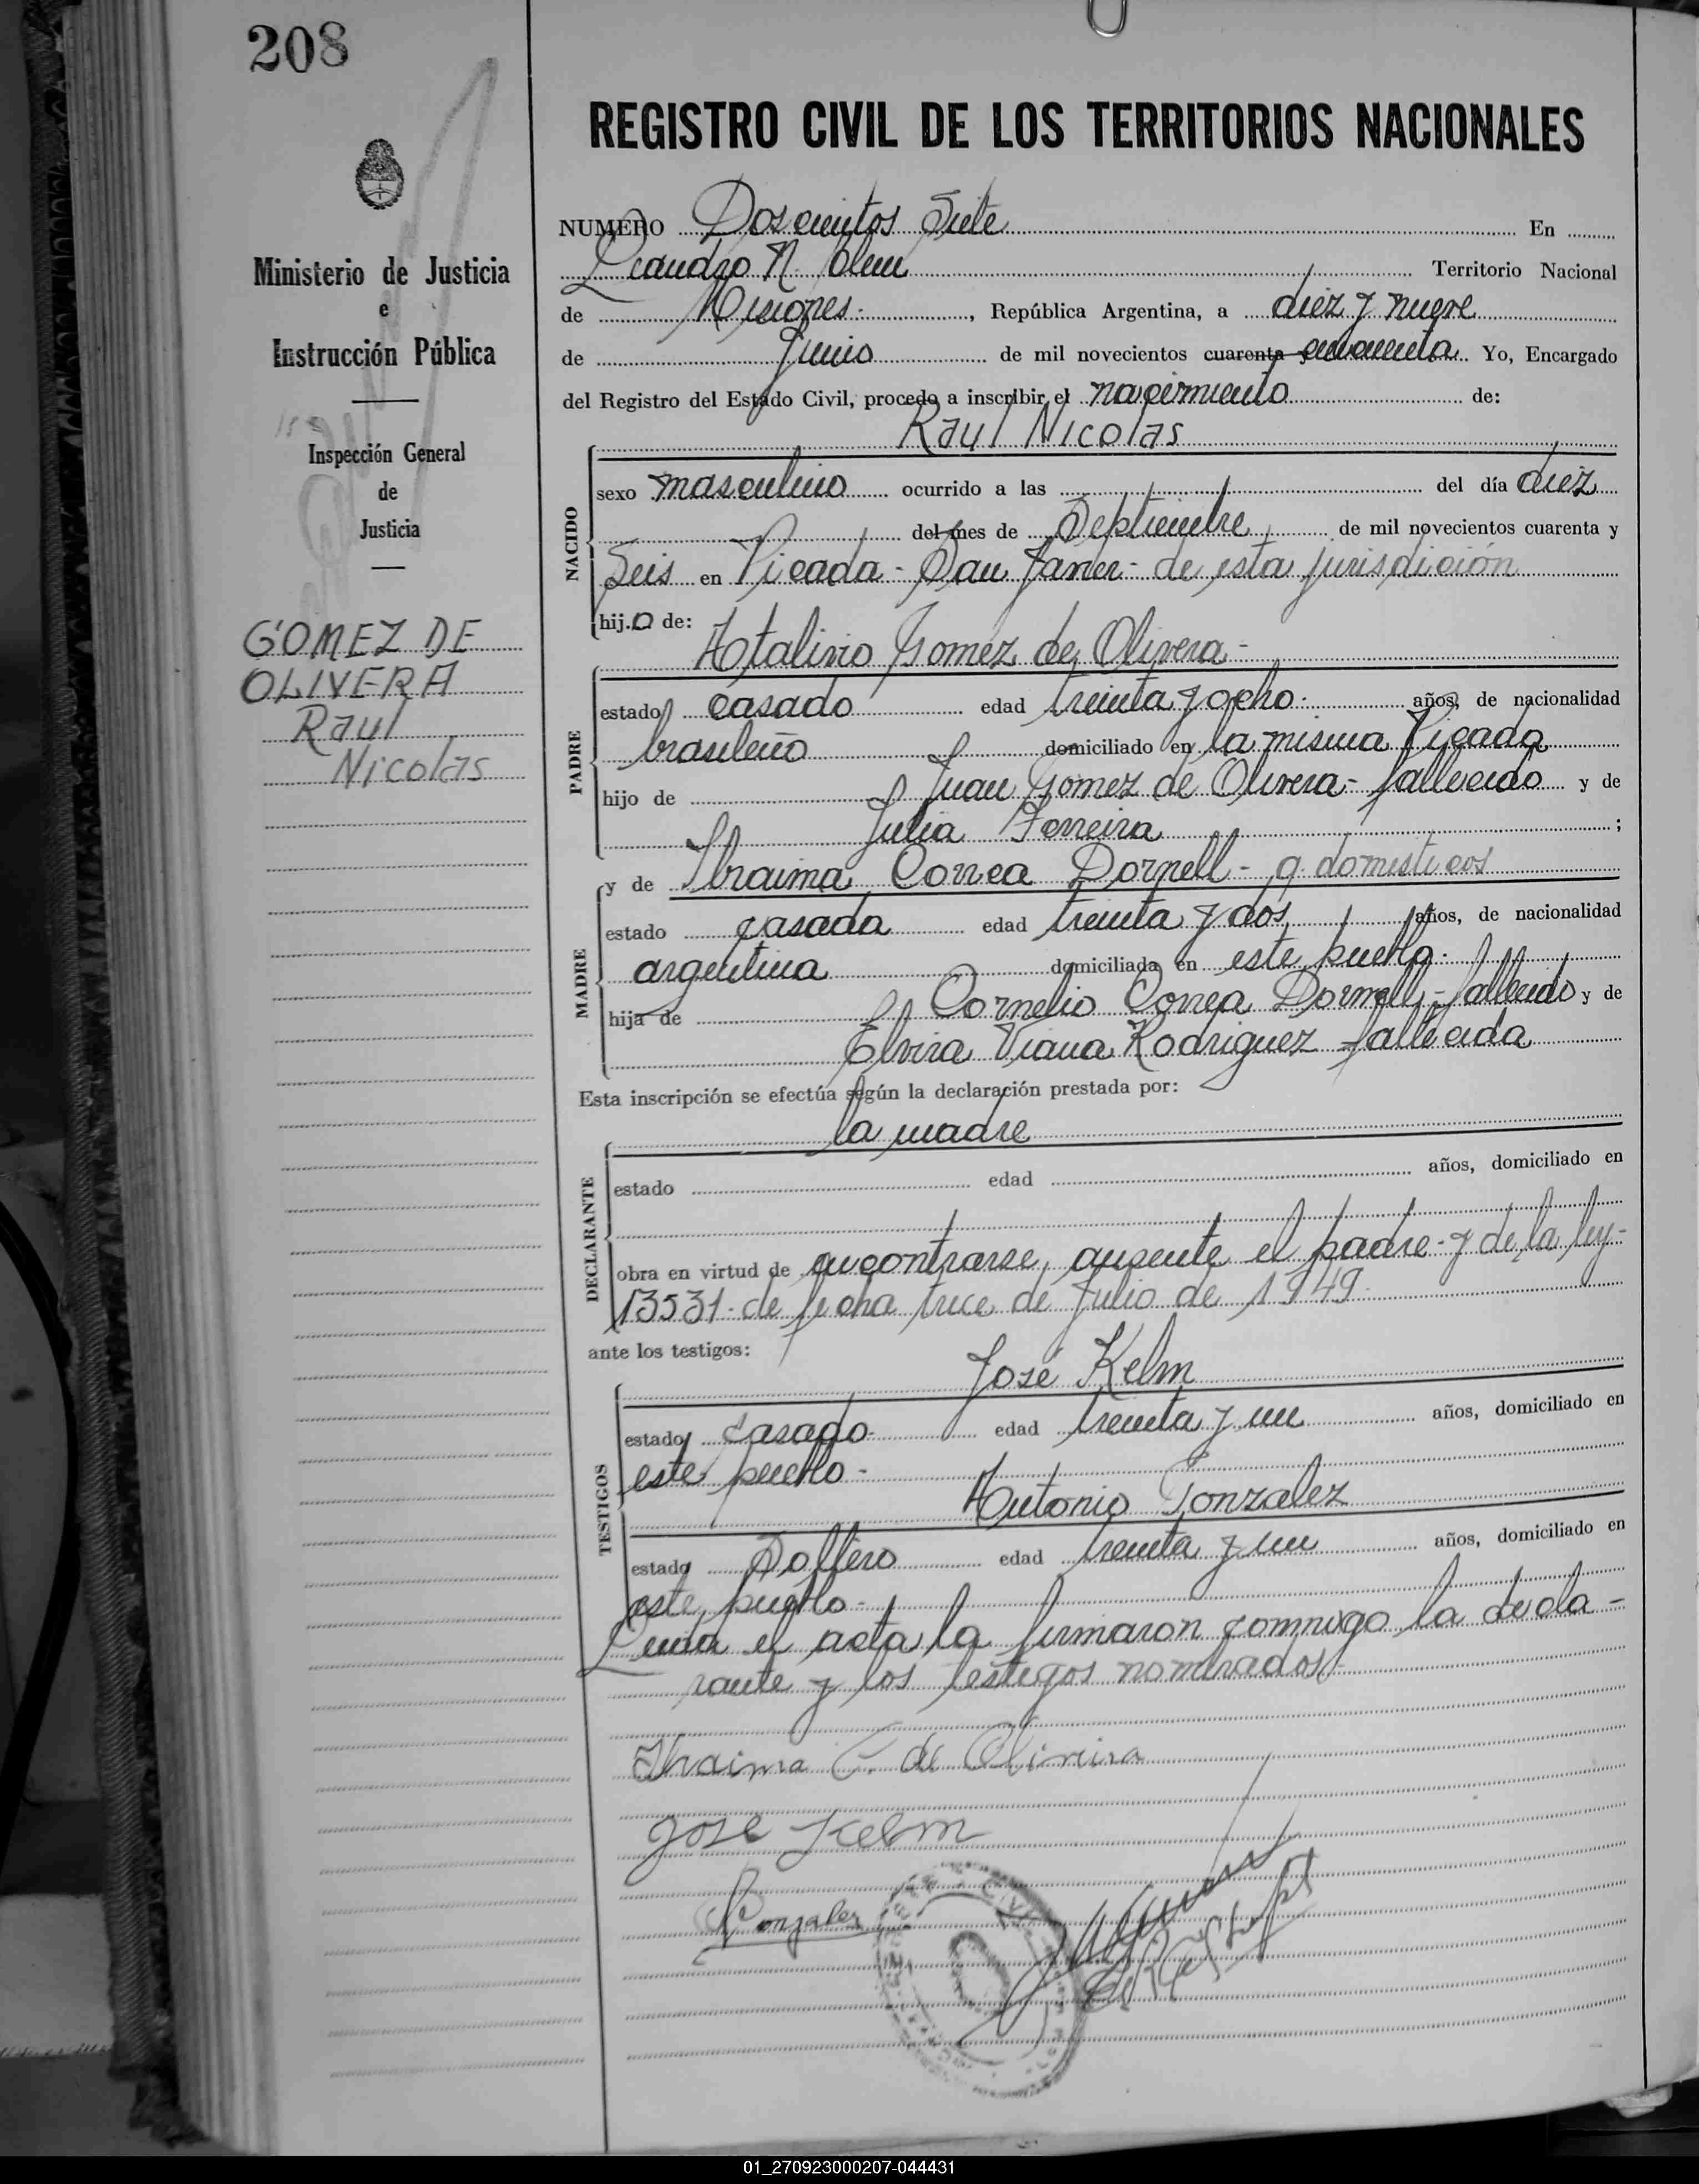 208
REGISTRO CIVIL DE LOS TERRITORIOS NACIONALES
Ministerio de Justicia
e
Instrucción Pública
Inspección General
de
Justicia
GOMEZ DE
OLIVERA
Raul
Nicolas
NUMERO Doscientos Siete En
Leandro N. Alem Territorio Nacional
de Misiones , República Argentina, a diez y nueve
de Junio de mil novecientos cuarenta y cincuenta Yo, Encargado
del Registro del Estado Civil, procedo a inscribir el nacimiento de:
Raul Nicolas
NACIDO
sexo masculino ocurrido a las del día diez
del mes de Septiembre de mil novecientos cuarenta y
Seis en Picada - San Javier - de esta jurisdicción
hij.o de:
Atalivio Gomez de Olivera -
PADRE
estado casado edad treinta y ocho años, de nacionalidad
brasileño domiciliado en la misma Picada
hijo de Juan Gomez de Olivera - fallecido y de
Julia Ferreira ;
y de Ibraima Correa Dornell - q. domesticos
MADRE
estado casada edad treinta y dos años, de nacionalidad
argentina domiciliada en este pueblo.
hija de Cornelio Correa Dornell - fallecido y de
Elvira Viana Rodriguez fallecida
Esta inscripción se efectúa según la declaración prestada por:
la madre
DECLARANTE
estado edad años, domiciliado en
obra en virtud de encontrarse ausente el padre - y de la ley -
13531 - de fecha trece de Julio de 1949.
ante los testigos:
José Kelm
TESTIGOS
estado casado edad treinta y un años, domiciliado en
este pueblo -
Antonio Gonzalez
estado Soltero edad treinta y un años, domiciliado en
este pueblo -
Leida el acta la firmaron conmigo la decla -
rante y los testigos nombrados
Ibraima C. de Oliveira
José Kelm
Gonzalez
01_270923000207-044431